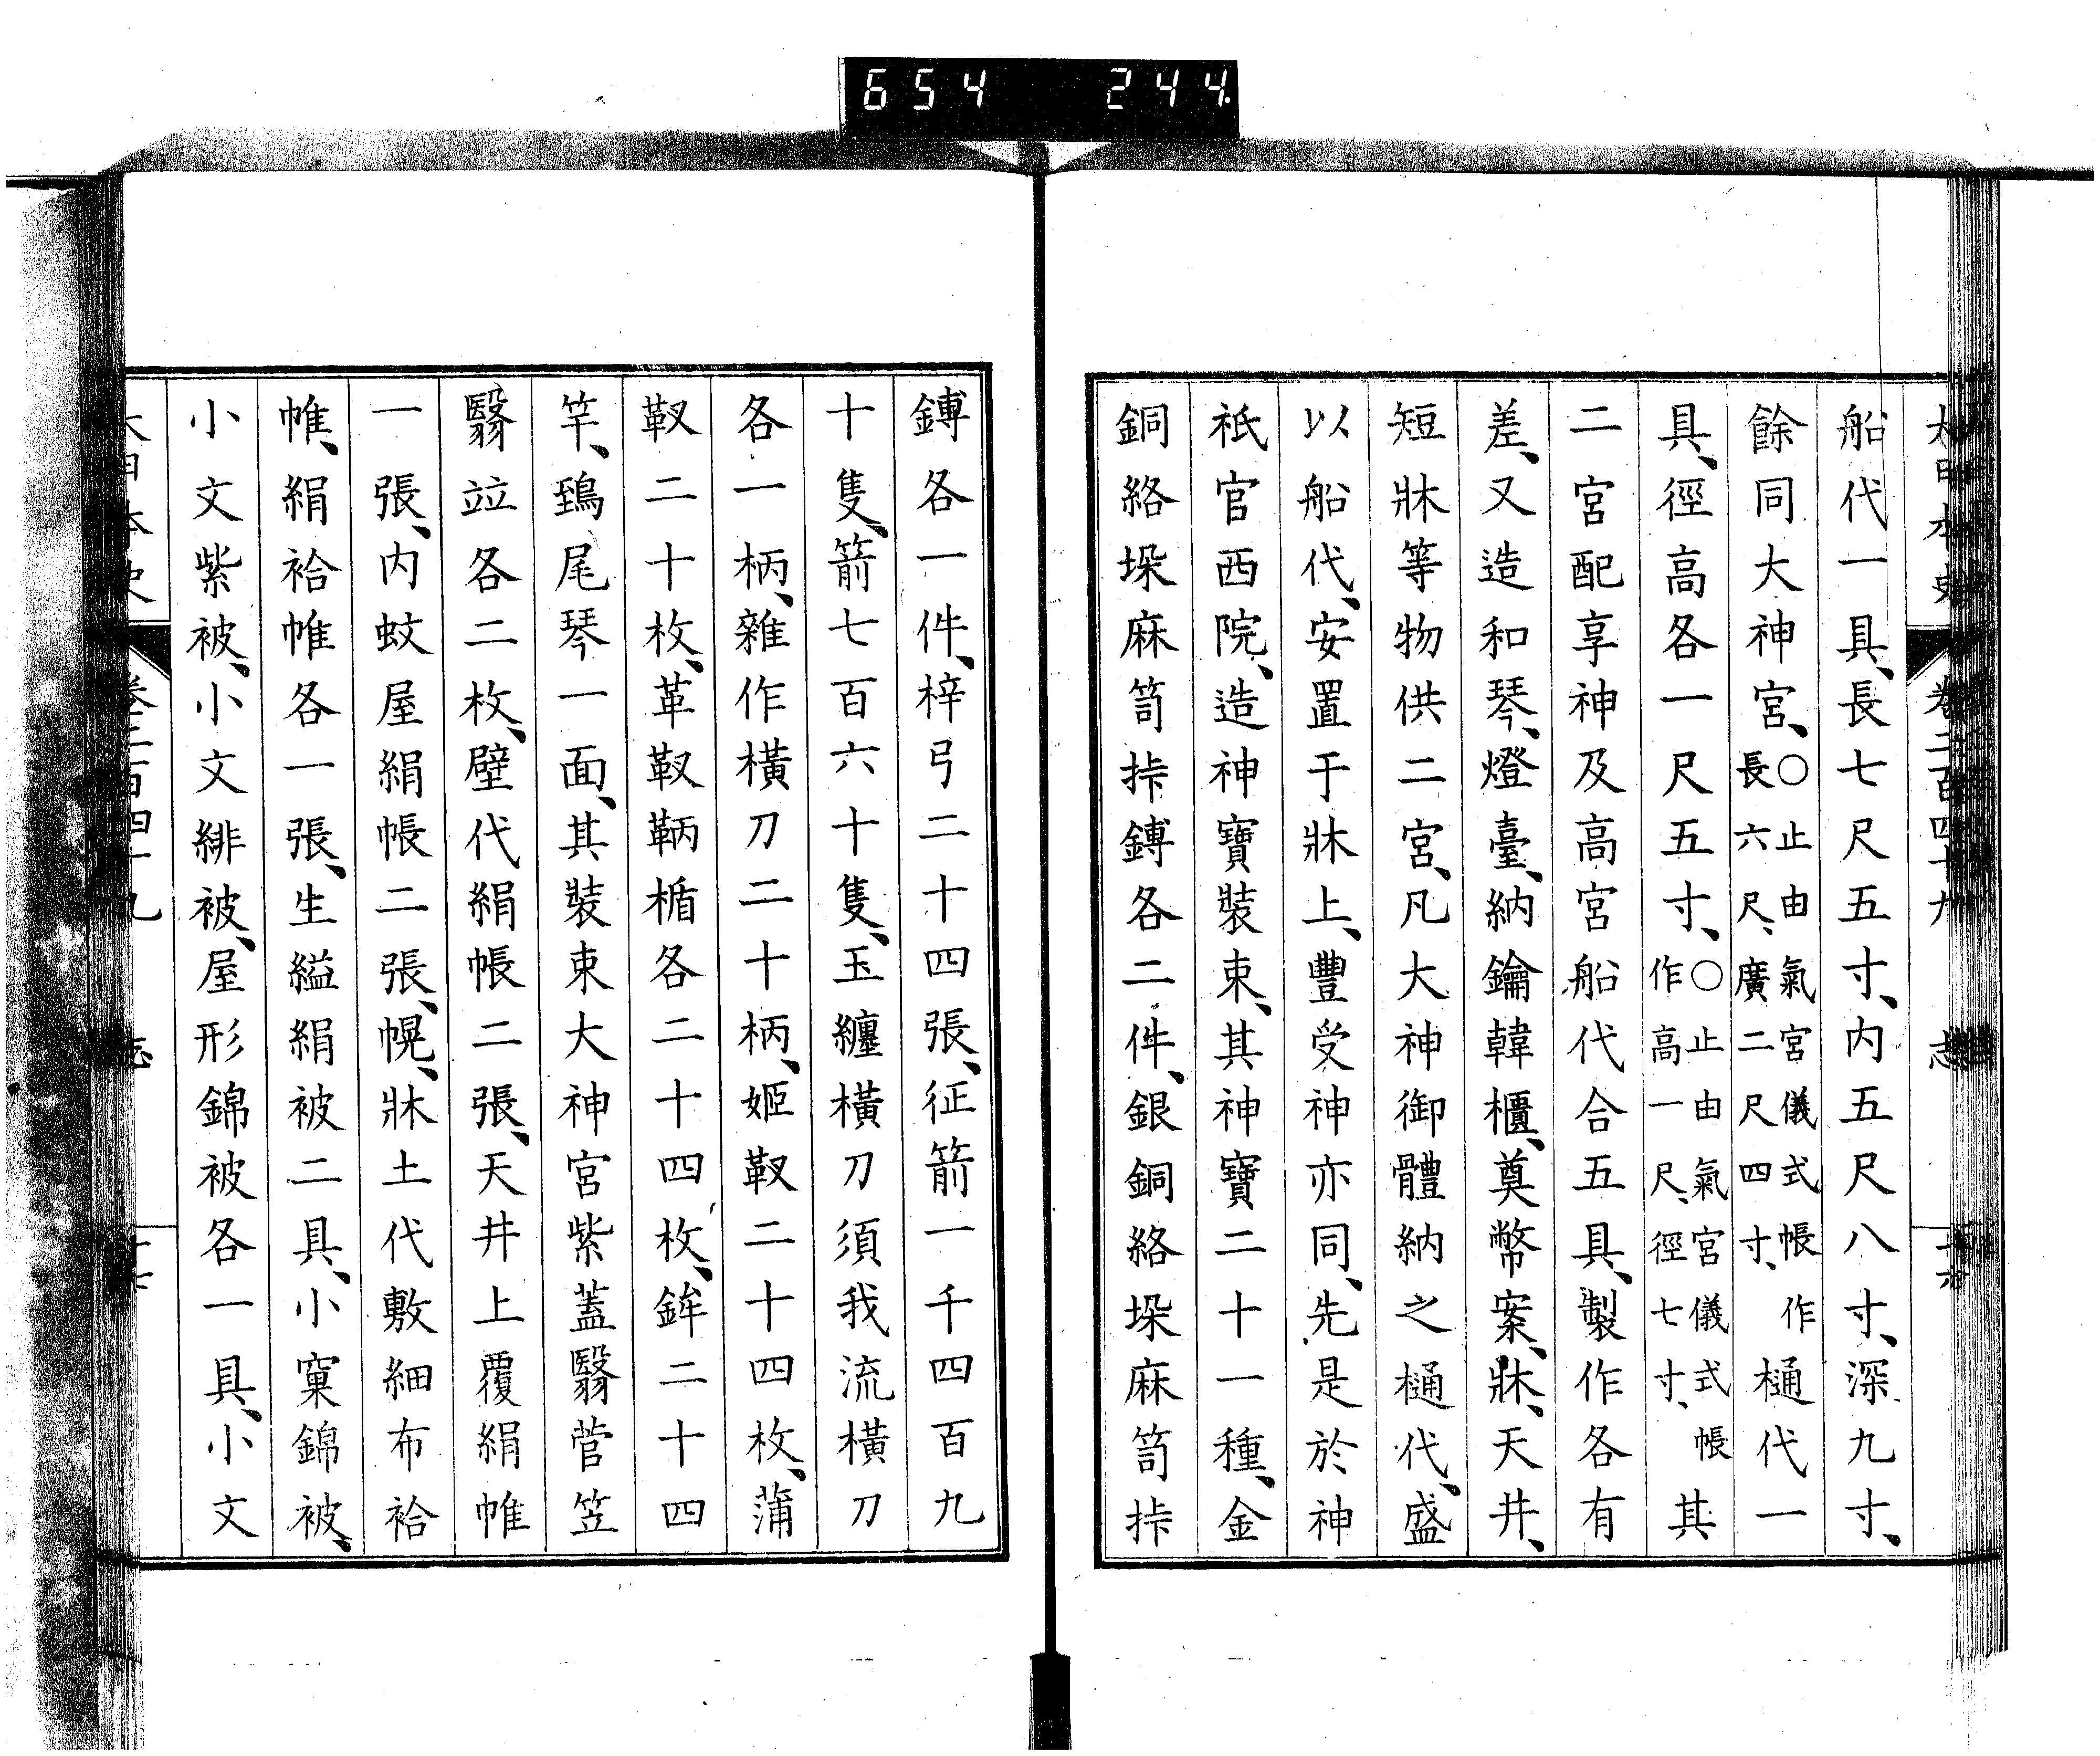 654 244
大日本史 卷二百四十九 志
船代一具、長七尺五寸、内五尺八寸、深九寸、
餘同大神宮、〇止由氣宮儀式帳作長六尺、廣二尺四寸、樋代一
具、徑高各一尺五寸、〇止由氣宮儀式帳作高一尺、徑七寸、其
二宮配享神及高宮船代合五具、製作各有
差、又造和琴、燈臺、納鑰韓櫃、奠幣案、牀、天井、
短牀等物供二宮、凡大神御體納之樋代、盛
以船代、安置于牀上、豐受神亦同、先是於神
祇官西院、造神寶裝束、其神寶二十一種、金
銅絡垜麻笥㭙鎛各二件、銀銅絡垜麻笥㭙
鎛各一件、梓弓二十四張、征箭一千四百九
十隻、箭七百六十隻、玉纏橫刀須我流橫刀
各一柄、雜作橫刀二十柄、姬靫二十四枚、蒲
靫二十枚、革靫鞆楯各二十四枚、鉾二十四
竿、鵄尾琴一面、其裝束大神宮紫蓋翳菅笠
翳竝各二枚、壁代絹帳二張、天井上覆絹帷
一張、内蚊屋絹帳二張、幌、牀土代敷細布袷
帷、絹袷帷各一張、生縊絹被二具、小窠錦被、
小文紫被、小文緋被、屋形錦被各一具、小文
大日本史 卷二百四十九 志